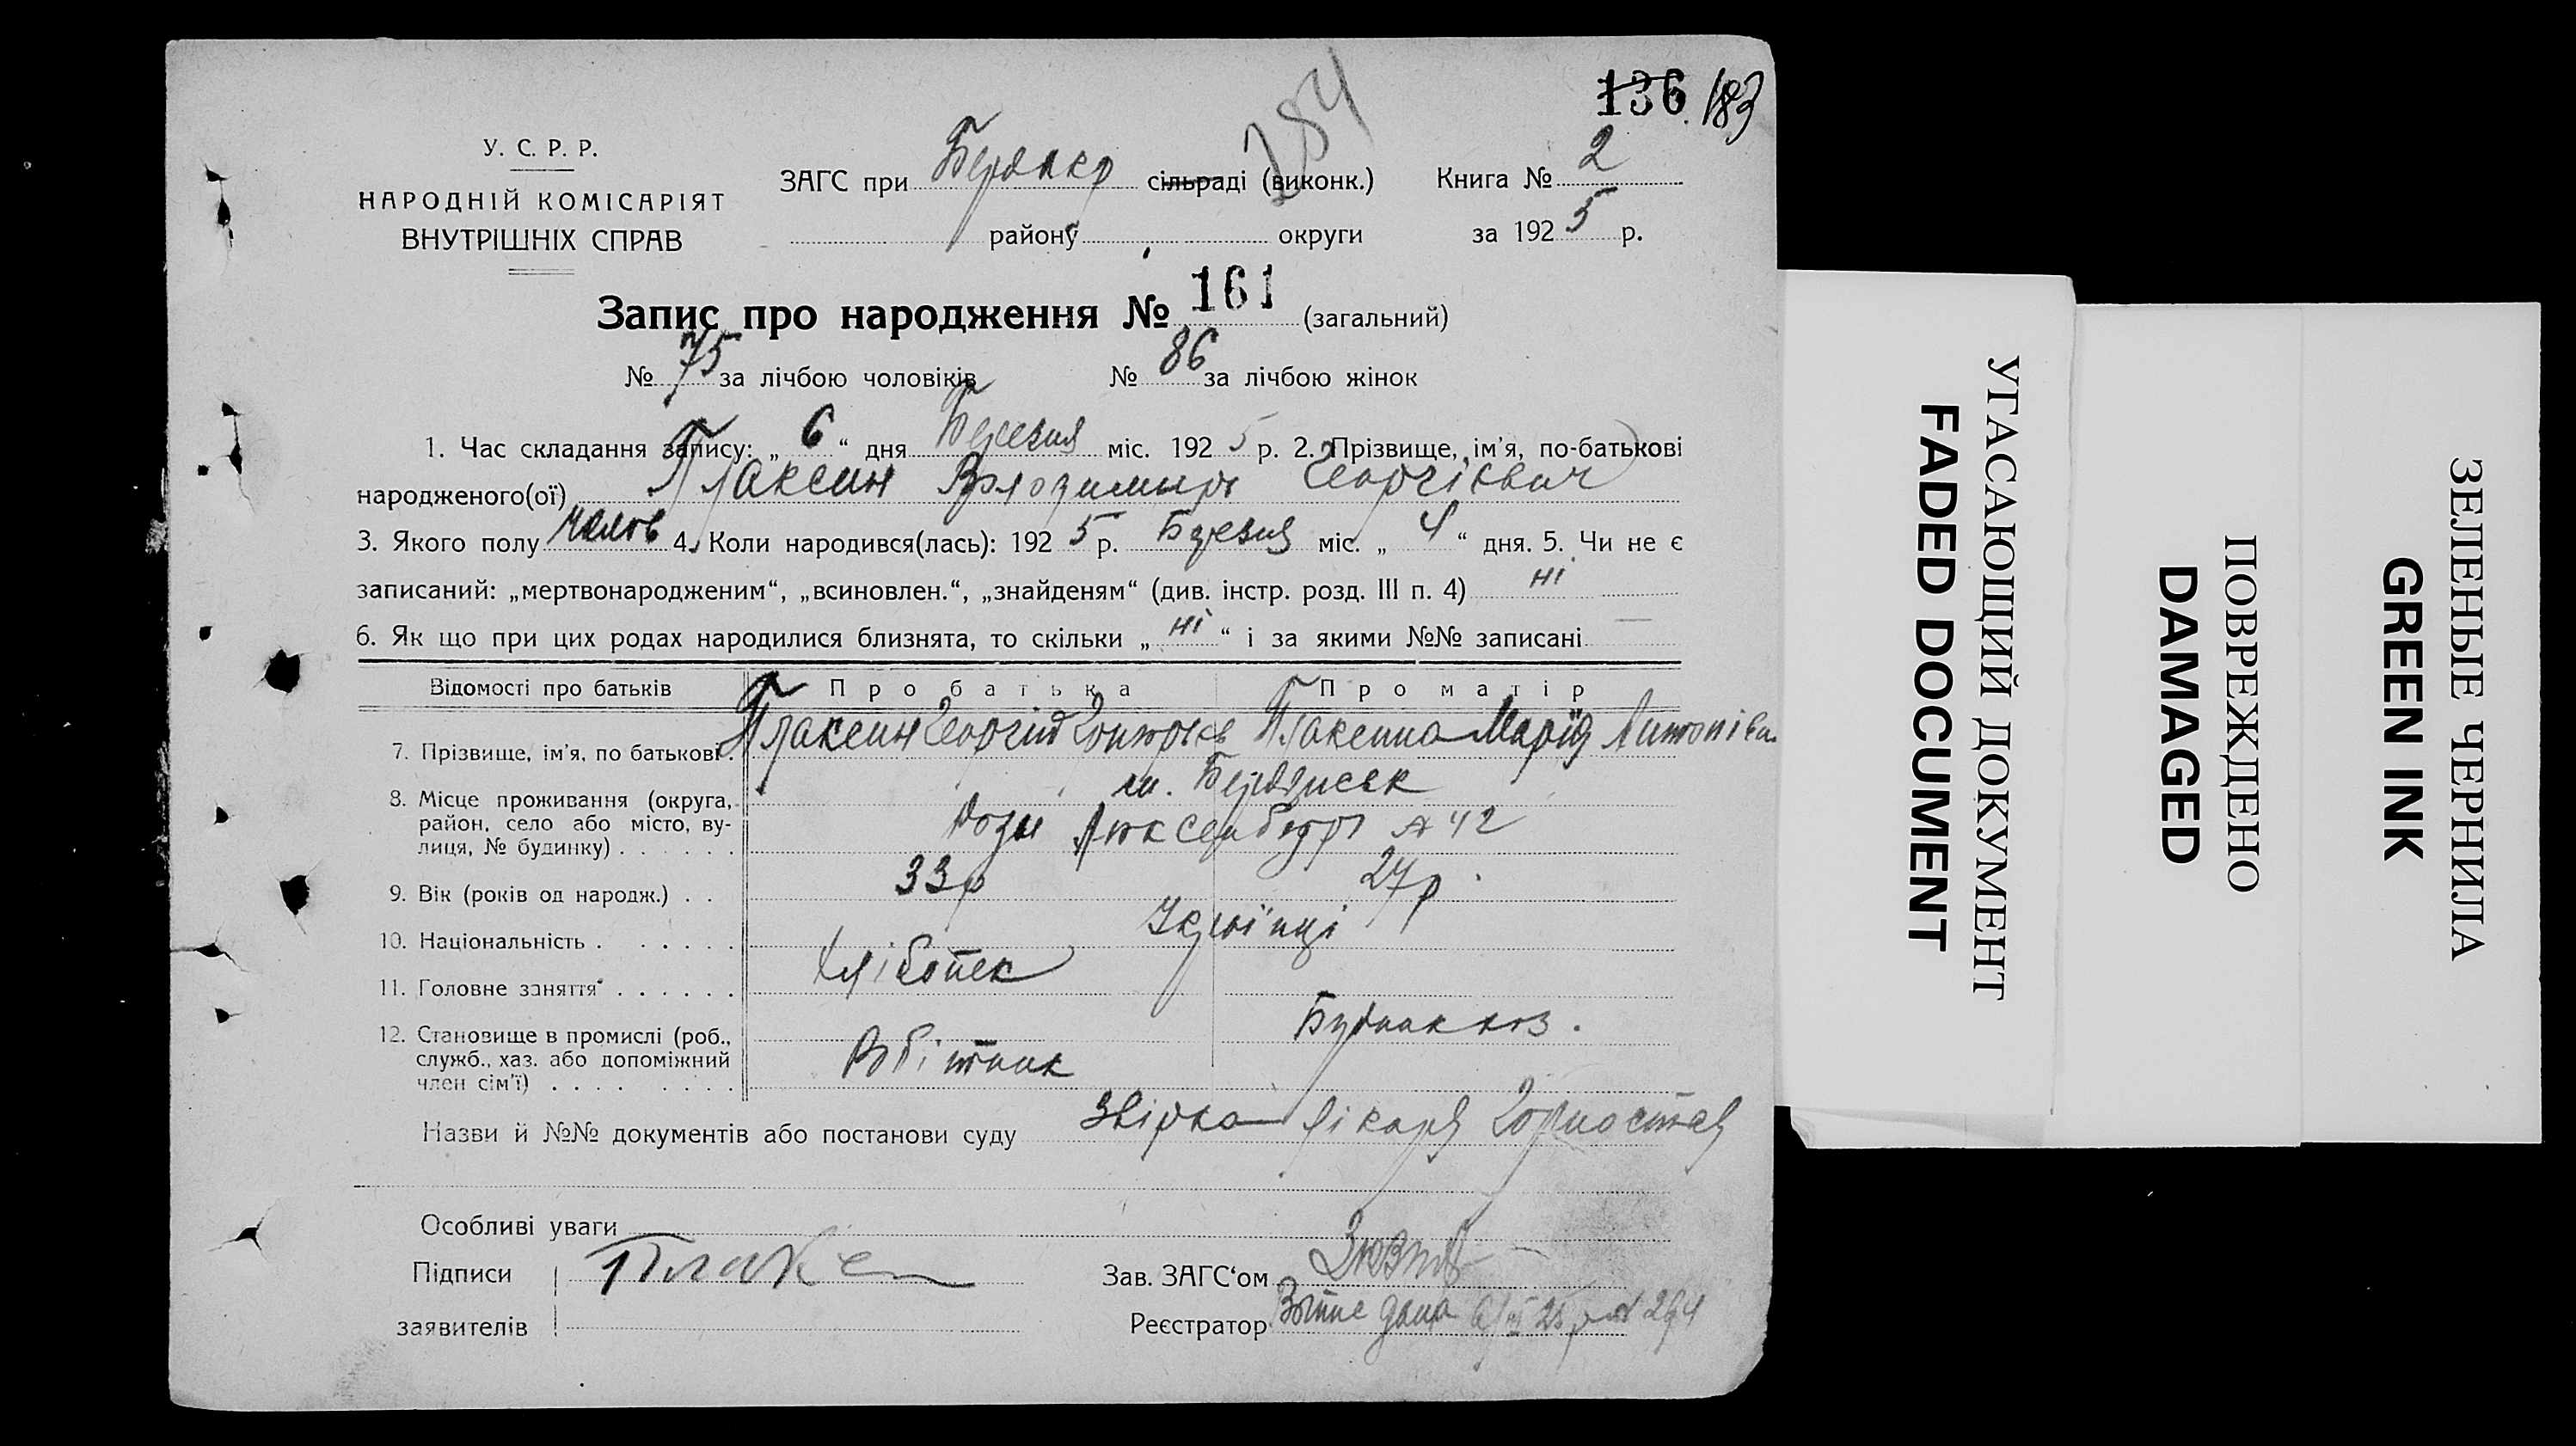 136 183
184
У. С. Р. Р.
НАРОДНІЙ КОМІСАРІЯТ
ВНУТРІШНІХ СПРАВ
ЗАГС при сільраді (виконк.) Книга № 2
району округи за 1925 р.
Запис про народження № 161 (загальний)
№ 75 за лічбою чоловіків № 86 за лічбою жінок
1. Час складання запису: „ 6 “ дня Березня міс. 1925 р. 2. Прізвище, ім’я, по-батькові
народженого(ої) Плаксин Володимир Георгієвич
3. Якого полу челов 4. Коли народився(лась): 1925 р. Березня міс. „ 4 “ дня. 5. Чи не є
записаний: „мертвонародженим“, „всиновлен.“, „знайденям“ (див. інстр. розд. III п. 4) ні
6. Як що при цих родах народилися близнята, то скільки „ ні “ і за якими №№ записані —
Відомості про батьків Про батька Про матір
7. Прізвище, ім’я, по батькові. Плаксин Георгій Плаксина Марія Антонівна
8. Місце проживання (округа, район, село або місто, вулиця, № будинку) м. Бердянськ
Рози Люксембург № 42
9. Вік (років од народж.) 33 р 27 р.
10. Національність Українці
11. Головне заняття Хлібопек
12. Становище в промислі (роб., служб., хаз. або допоміжний член сім’ї) Робітник
Назви й №№ документів або постанови суду лікаря Горностая
Особливі уваги
Підписи Плаксин Зав. ЗАГС‘ом
заявителів Реєстратор 25 р № 294
УГАСАЮЩИЙ ДОКУМЕНТ
FADED DOCUMENT
ПОВРЕЖДЕНО
DAMAGED
ЗЕЛЕНЫЕ ЧЕРНИЛА
GREEN INK